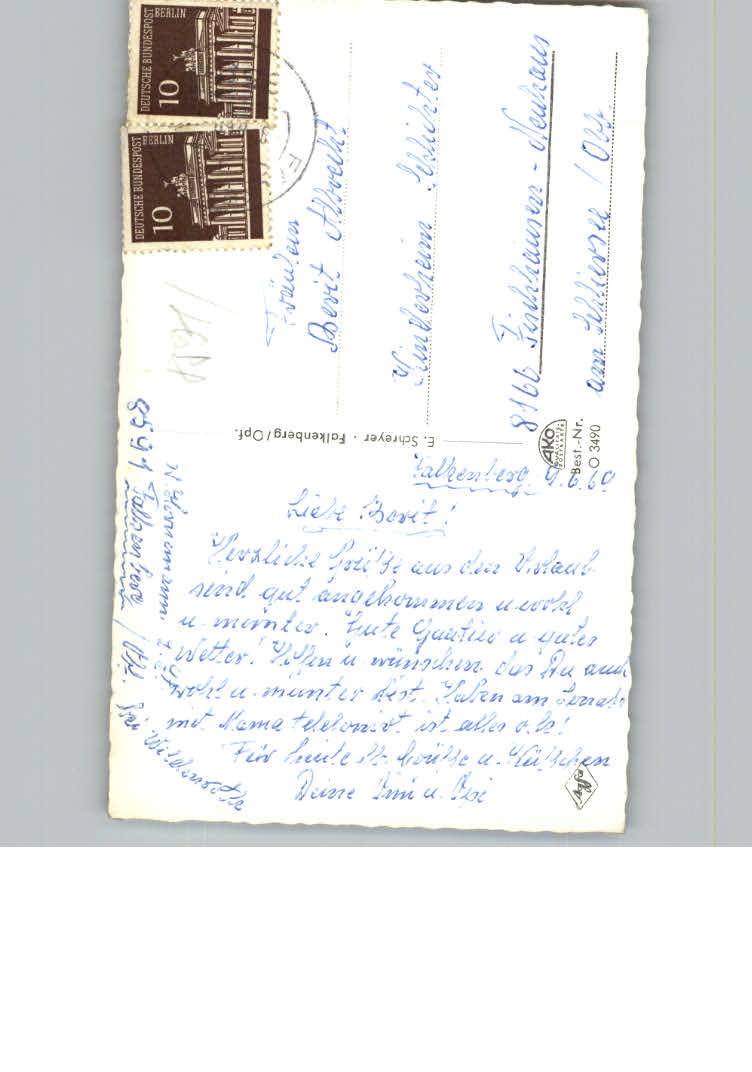 DEUTSCHE BUNDESPOST
BERLIN
10
DEUTSCHE BUNDESPOST
BERLIN
10
Fräulein
Berit Albrecht
Kinderheim Schlichter
8166 Fischhausen - Neuhaus
am Schliersee / Obb.
E. Schreyer · Falkenberg/Opf.
AKO
Best.-Nr.
O 3490
Falkenberg, 9.6.69
Liebe Berit!
Herzliche Grüße aus den Urlaub
sind gut angekommen u wohl
u. munter. Gute Quartier u gutes
Wetter! Hoffen u wünschen das Du auch
wohl u. munter bist. Haben am
mit Mama telefonirt ist alles o.k!
Für heute Grüße u. Küßchen
Deine Omi u. Opi
8591 Falkenberg / Opf.
bei
Agfa